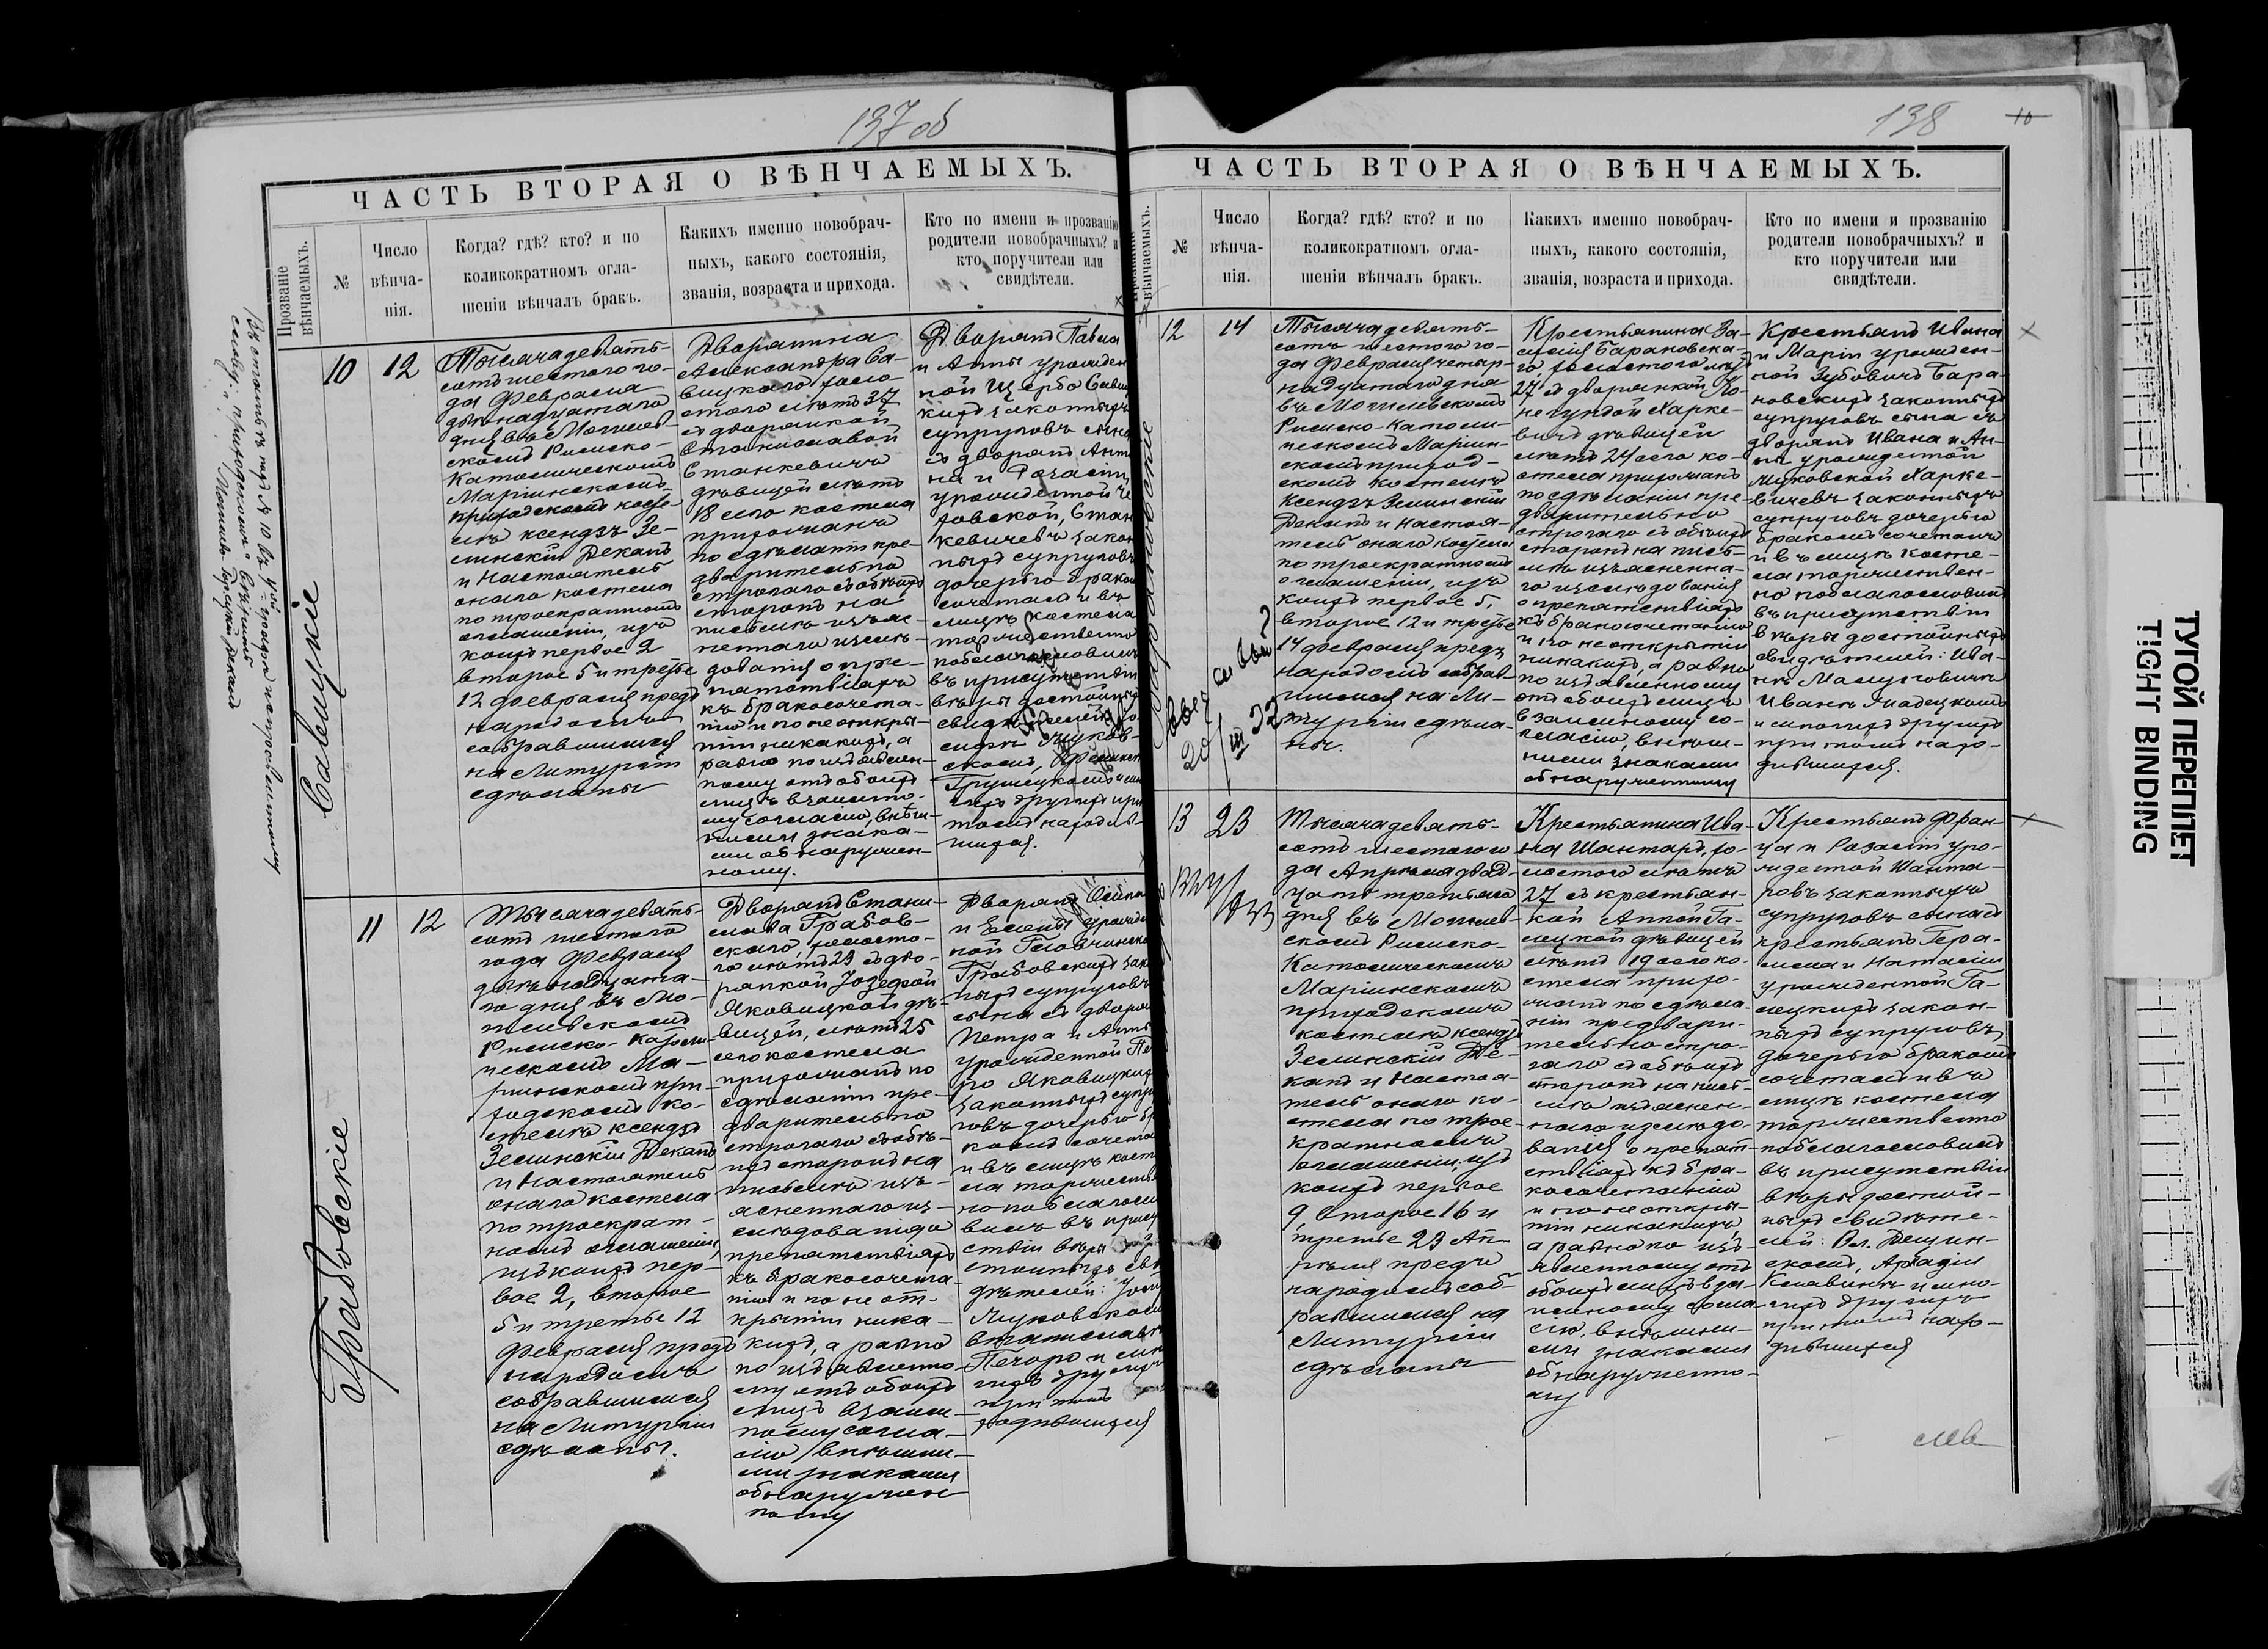 137 об
ЧАСТЬ ВТОРАЯ О ВѢНЧАЕМЫХЪ.
Прозваніе
вѣнчаемыхъ.
№
Число
вѣнча-
нія.
Когда? гдѣ? кто? и по
коликократномъ огла-
шеніи вѣнчалъ бракъ.
Какихъ именно новобрач-
ныхъ, какого состоянія,
званія, возраста и прихода.
Кто по имени и прозванію
родители новобрачныхъ? и
кто поручители или
свидѣтели.
Савицкіе
10
12
Тысяча девять-
сотъ шестого го-
да Февраля
двѣнадцатаго
дня въ Могилев-
скомъ Римско-
Католическомъ
Маріинскомъ
приходскомъ косте-
лѣ ксендзъ Зе-
линскій Деканъ
и Настоятель
онаго костела
по троекратномъ
оглашеніи, изъ
коихъ первое 2
второе 5 и третье
12 февраля предъ
народомъ
собравшимся
на Литургіи
сдѣланы
Дворянина
Александра Са-
вицкаго холо-
стого лѣтъ 37
съ дворянкой
Станиславой
Станкевичъ
дѣвицей лѣтъ
18 сего костела
прихожанъ
по сдѣланіи пре-
дварительно
строгаго съ обѣихъ
сторонъ на
письмѣ изъяс-
неннаго изслѣ-
дованія о пре-
пятствіяхъ
къ бракосочета-
нію и по неоткры-
тіи никакихъ, а
равно по изъявлен-
ному отъ обоихъ
лицъ взаимно-
му согласію, внѣш-
ними знака-
ми обнаружен-
ному.
Дворянъ Павла
и Анны урожден
ной Щербо Савиц
кихъ законныхъ
супруговъ сына
съ дворянъ Анто
на и Розаліи
урожденной Че
ховской, Стан
кевичевъ закон
ныхъ супруговъ
дочерью браком
сочеталъ и въ
лицѣ костела
торжественно
поблагословилъ
въ присутствіи
вѣры достойныхъ
свидѣтелей: Іо
сифѣ Жуков-
скомъ,
Грушецкомъ и мно
гихъ другихъ при
томъ находив-
шихся.
Грабовскіе
11
12
Тысяча девять-
сотъ шестого
года Февраля
двѣнадцата-
го дня въ Мо-
гилевскомъ
Римско-Католи-
ческомъ Ма-
ріинскомъ при-
ходскомъ ко-
стелѣ ксендзъ
Зелинскій Деканъ
и Настоятель
онаго костела
по троекрат-
номъ оглашеніи,
изъ коихъ пер-
вое 2, второе
5 и третье 12
Февраля предъ
народомъ
собравшимся
на Литургіи
сдѣланы.
Дворянъ Стани-
слава Грабов-
скаго, холосто-
го лѣтъ 29 съ дво-
рянкой Іозефой
Яковицкой дѣ-
вицей, лѣтъ 25
сего костела
прихожанъ по
сдѣланіи пре-
дварительно
строгаго съ обѣ-
ихъ сторонъ на
письмѣ изъ-
ясненнаго из-
слѣдованія о
препятствіяхъ
къ бракосочета-
нію и по неот-
крытіи ника-
кихъ, а равно
по изъявленно-
му отъ обоихъ
лицъ взаим-
ному согла-
сію внѣшни-
ми знаками
обнаружен
ному
Дворянъ Осипа
и Елены урожден
ной Головчинской
Грабовскихъ зако
ныхъ супруговъ
сына съ дворян
Петра и Анны
урожденной Пе
ро Яковицкихъ
законныхъ супру
говъ дочерью бра
комъ сочеталъ
и въ лицѣ косте
ла торжествен
но поблагосло
вилъ въ прису
ствіи вѣры до
стойныхъ сви
дѣтелей:
Жуковскомъ
Вячеславѣ
Печоро и мно
гихъ другихъ
при томъ на
ходившихся
138
10
ЧАСТЬ ВТОРАЯ О ВѢНЧАЕМЫХЪ.
вѣнчаемыхъ.
№
Число
вѣнча-
нія.
Когда? гдѣ? кто? и по
коликократномъ огла-
шеніи вѣнчалъ бракъ.
Какихъ именно новобрач-
ныхъ, какого состоянія,
званія, возраста и прихода.
Кто по имени и прозванію
родители новобрачныхъ? и
кто поручители или
свидѣтели.
Барановскіе
12
14
Тысяча девять-
сотъ шестого го-
да Февраля четыр-
надцатаго дня
въ Могилевскомъ
Римско-Католи-
ческомъ Маріин-
скомъ приход-
скомъ костелѣ
Ксендзъ Зелинскій
Деканъ и Настоя-
тель онаго костела
по троекратномъ
оглашеніи, изъ
коихъ первое 5,
второе 12 и третье
14 февраля предъ
народомъ собрав-
шимся на Ли-
тургіи сдѣла-
ны.
Крестьянина Ва-
силія Барановска-
го, холостого лѣтъ
27 съ дворянкой Ко-
негундой Харке-
вичъ дѣвицей
лѣтъ 24 сего ко-
стела прихожанъ
по сдѣланіи пре-
дварительно
строгаго съ обѣихъ
сторонъ на пись-
мѣ изъясненна-
го изслѣдованія
о препятствіяхъ
къ бракосочетанію
и по неоткрытіи
никакихъ, а равно
по изъявленному
отъ обоихъ лицъ
взаимному со-
гласію, внѣш-
ними знаками
обнаруженному
Крестьянъ Ивана
и Маріи урожден-
ной Зубовичъ Бара-
новскихъ законныхъ
супруговъ сына съ
дворянъ Ивана и Ан-
ны урожденной
Жуковской Харке-
вичевъ законныхъ
супруговъ дочерью
бракомъ сочеталъ
и въ лицѣ косте-
ла торжествен-
но поблагословилъ
въ присутствіи
вѣры достойныхъ
свидѣтелей: Ива-
нѣ Масуловичѣ
Иванѣ
и многихъ другихъ
при томъ нахо-
дившихся.
13
23
Тысяча девять-
сотъ шестого го
да Апрѣля двад-
цать третьяго
дня въ Могилев-
скомъ Римско-
Католическомъ
Маріинскомъ
приходскомъ
костелѣ ксендзъ
Зелинскій Де-
канъ и Настоя-
тель онаго ко-
стела по трое-
кратномъ
оглашеніи, изъ
коихъ первое
9, второе 16 и
третье 23 Ап-
рѣля предъ
народомъ соб-
равшимся на
Литургіи
сдѣланы
Крестьянина Ива-
на Шантаръ, хо-
лостого лѣтъ
27 съ крестьян-
кой Анной Га-
лецкой дѣвицей
лѣтъ 19 сего ко-
стела прихо-
жанъ по сдѣла-
ніи предвари-
тельно стро-
гаго съ обѣихъ
сторонъ на пись-
мѣ изъяснен-
наго изслѣдо-
ванія о препят-
ствіяхъ къ бра-
косочетанію
и по неоткры-
тіи никакихъ,
а равно по изъ-
явленному отъ
обоихъ лицъ вза-
имному согла-
сію, внѣшни-
ми знаками
обнаруженно-
му
Крестьянъ Фран-
ца и Розаліи уро-
жденной Шанта-
ровъ законныхъ
супруговъ сына съ
крестьянъ Гера-
сима и Наталіи
урожденной Га-
лецкихъ закон-
ныхъ супруговъ
дочерью бракомъ
сочеталъ и въ
лицѣ костела
торжественно
поблагословилъ
въ присутствіи
вѣры достой-
ныхъ свидѣте-
лей: Вл. Дещин-
скомъ, Аркадіи
Клавинѣ и мно-
гихъ другихъ
при томъ нахо-
дившихся
ТУГОЙ ПЕРЕПЛЕТ
TIGHT BINDING